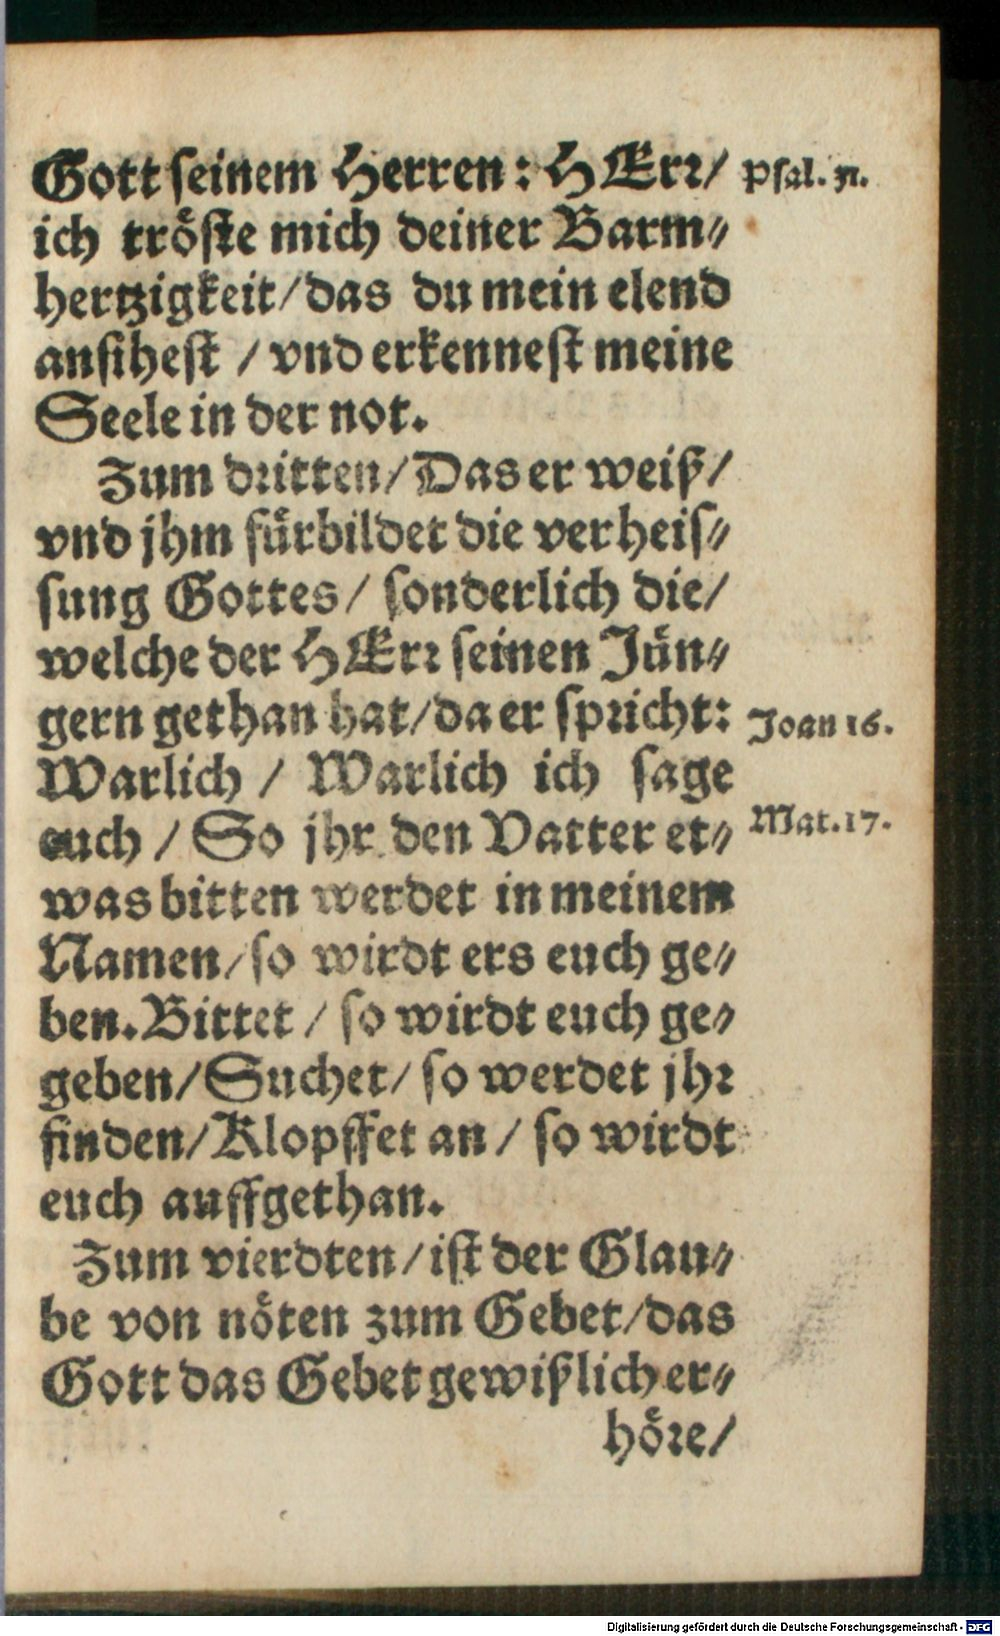 Gott seinem Herren: HErr/ Psal. 31.
ich tröste mich deiner Barm⸗
hertzigkeit/das du mein elend
ansihest / vnd erkennest meine
Seele in der not.
Zum dritten/Das er weiß/
vnd jhm fürbildet die verheis⸗
sung Gottes/ sonderlich die/
welche der HErr seinen Jün⸗
gern gethan hat/da er spricht: Joan 16.
Warlich / Warlich ich sage
euch / So jhr den Vatter et⸗ Mat. 17.
was bitten werdet in meinem
Namen/so wirdt ers euch ge⸗
ben. Bittet / so wirdt euch ge⸗
geben/Suchet/ so werdet jhr
finden/Klopffet an / so wirdt
euch auffgethan.
Zum vierdten/ist der Glau⸗
be von nöten zum Gebet/das
Gott das Gebet gewißlich er⸗
höre/
Digitalisierung gefördert durch die Deutsche Forschungsgemeinschaft - DFG